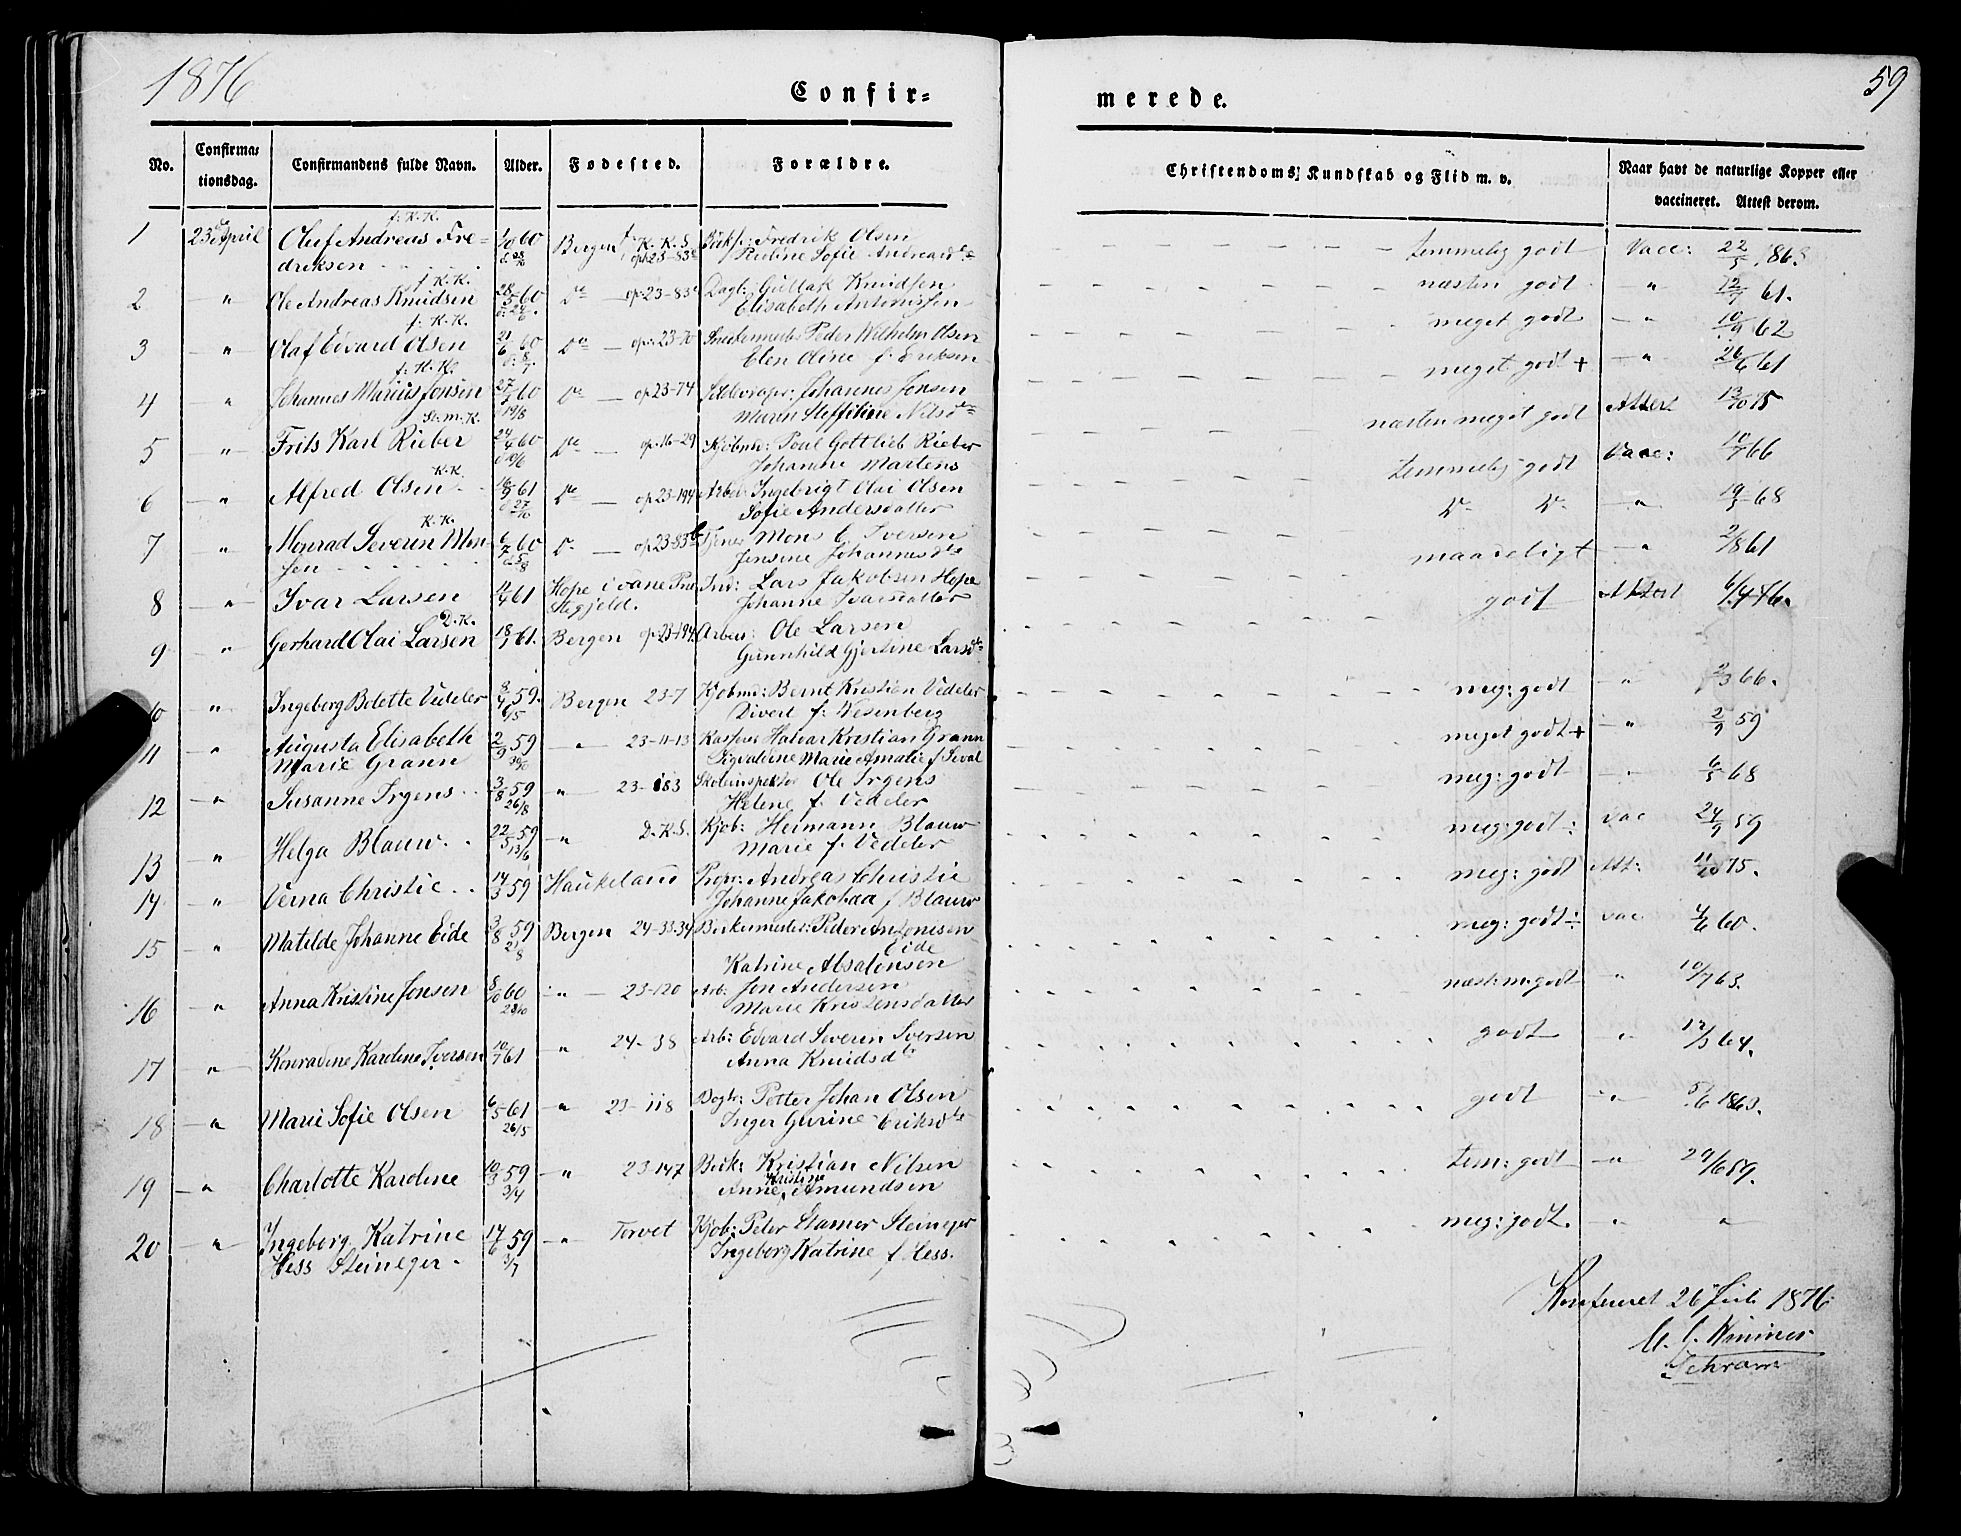 1876
Confir=
merede.
59
No.
Confirma=
tionsdag.
Confirmandens fulde Navn.
Alder.
Fødested.
Forældre.
Christendoms Kundskab og Flid m. v.
Naar havt de naturlige Kopper eller
vaccineret. Attest derom.
f. K. K.
1 23de April Oluf Andreas Fre= 60 Bergen K. K. S. Fredrik Olsen temmelig godt Vacc: 22/5
driksen op 23-83 Pauline Sofie Andreasd.
f. K. K.
2 " Ole Andreas Knudsen 28/5 60 Do op 23-83 Dagl: Gullak Knudsen næsten godt " 12/7 61.
Elisabeth Antonissen
f. K. K.
3 " Olaf Edvard Olsen 21/6 60 Do op: 23-70 Peder Wilhelm Olsen meget godt " 10/9 62
8/7 Elen Oline f. Eriksen
f. K. K.
4 " Johannes Marius Jonsen 27/7 60 Do op 23-74 Johannes Jonsen meget godt + " 26/6 61
19/8 Maren Steffiline Nilsd
St. m. K.
5 " Frits Karl Rieber 24/4 60 Do op. 16-29 Kjøbmd: Poul Gottlieb Rieber næsten meget godt Attest 13/10 75
Johanne Martens
K. K.
6 " Alfred Olsen 16/9 61 Do op 23-194 Arbei: Ingebrigt Olai Olsen temmelig godt Vacc: 10/7 66
27/10 Sofie Andersdatter
K. K.
7 " Monrad Severin Mon= 6/7 60 Do op 23-83 b Mons C Iversen Do Do " 19/5 68
sen Jensine Johannesd
8 " Ivar Larsen 11/4 61 Hope i Hane Præ Ind: Lars Jakobsen Hope maadeligt " 2/8 61
stegjeld. Johanne Ivarsdatter
D. K.
9 " Gerhard Olai Larsen 18/1 61. Bergen op 23-194 Arbei: Ole Larsen godt Attest 6/4 76.
Gunnhild Gjertine Larsd
10 " Ingeborg Bolette Vedeler 3/4 59. Bergen 23-7 Kjøbmd: Bernt Kristian Vedeler meg: godt " 2/3 66.
6/5 Divert f. Wesenberg
11 " Augusta Elisabeth 2/9 59 " 23-11-13 Kasserer Halvar Kristian Grann meget godt + " 2/9 59
Marie Grann 30/10 Sigvaldine Marie Amalie f Seval
12 " Susanne Irgens 3/8 59 " 23-183 Skoleinspektør Ole Irgens meg: godt " 6/5 68
26/8 Helene f. Vedeler
13 " Helga Blauw 22/5 59 " D. K. S. Kjøb: Heimann Blauw meg: godt ÷ vac 24/9 59
13/6 Marie f. Vedeler
14 " Verna Christie 14/3 59 Haukeland Propr: Andreas Christie meg: godt Att: 11/10 75.
Johanne Jakobaa f Blauw
15 " Matilde Johanne Eide 3/8 59 Bergen 24-33.34 Peder Antonisen meg: godt ÷ vac 4/6 60.
21/8 Eide
Katrine Absalonsen
16 " Anna Kristine Jonsen 8/10 60 " 23-120 Arb: Jon Andersen næst. m. godt " 10/7 63.
28/10 Marie Kristensdatter
17 " Konradine Karoline Iversen 10/7 61 " 24-38 Arb: Edvard Severin Iversen godt " 12/3 64.
Anna Knudsd
18 " Marie Sofie Olsen 6/5 61 " 23-118 Dagl: Petter Johan Olsen godt " 5/6 1863.
26/5 Inger Gurine Eriksd
19 " Charlotte Karoline 10/3 59 " 23-147 Birk: Kristian Nilsen tem: godt " 29/6 59.
3/4 Anne Kristine Amundsen
20 " Ingeborg Katrine 17/6 59 " Torvet Kjøb: Peter Stamer Steineger meg: godt. " "
Hess Steineger 3/7 Ingeborg Katrine f. Hess.
Konfereret 26 Juli 1876
Schram